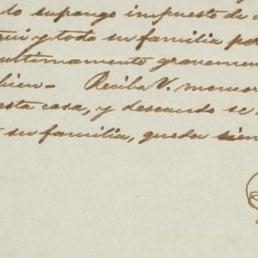 lo supongo impuesto de
qui y todo su familia per
ultimamente gravemen
bien.- Reciba V. memor
esta casa, y deseando se
su familia, queda siem